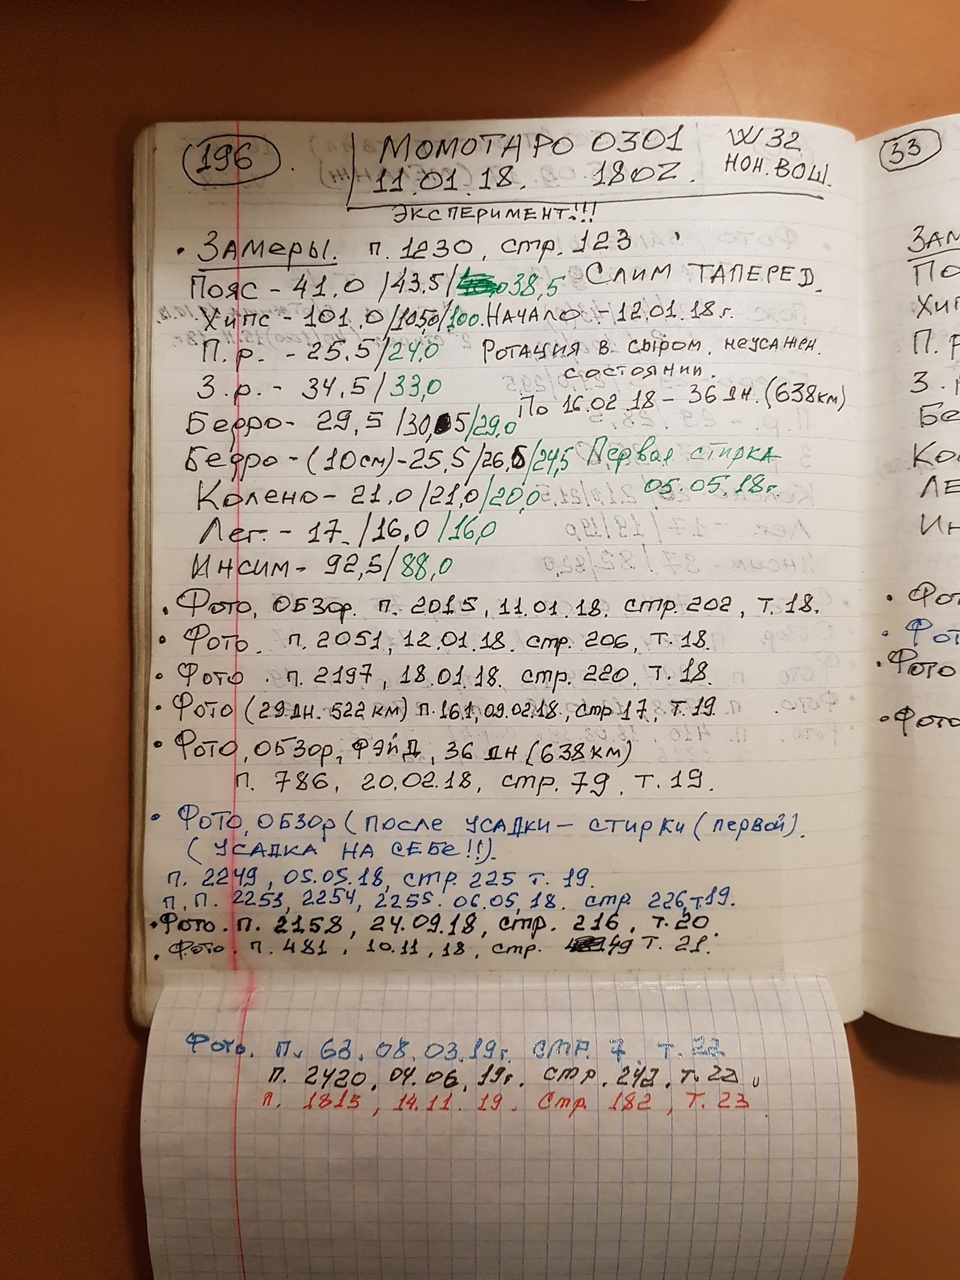 196
МОМОТАРО 0301 W 32
11.01.18. 18OZ. НОН.ВОШ.
ЭКСПЕРИМЕНТ!!!
• ЗАМЕРЫ. п. 1230, стр. 123
Пояс - 41.0 /43.5/ 38,5 СЛИМ ТАПЕРЕД.
Хипс - 101.0/105,0/100. НАЧАЛО - 12.01.18г.
П.р. - 25.5/24,0 Ротация в сыром, неусажен.
состоянии.
З.р. - 34,5/33,0 По 16.02.18 - 36 дн. (638км)
Бедро - 29,5 /30,5/29,0
Бедро - (10см) - 25,5/26,5/24,5 Первая стирка
Колено - 21.0/21,0/20,0 05.05.18г
Лег. - 17. /16,0/16,0
Инсим - 92,5/88,0
• Фото, ОБЗОР. п. 2015, 11.01.18. стр. 202, т.18.
• Фото. п. 2051, 12.01.18. стр. 206, т.18.
• Фото. п. 2197, 18.01.18. стр. 220, т.18
• Фото (29дн. 522 км) п.161, 09.02.18., стр 17, т.19
• Фото, ОБЗОР, ФЭЙД, 36 дн (638км)
п. 786, 20.02.18, стр. 79, т.19.
• ФОТО, ОБЗОР (после усадки - стирки (первой).
(УСАДКА НА СЕБЕ!!).
п. 2249, 05.05.18, стр. 225 т. 19.
п.п. 2253, 2254, 2255. 06.05.18. стр 226, т19.
• Фото. п. 2158, 24.09.18, стр. 216, т.20.
• Фото. п. 481, 10.11, 18, стр. 49 т. 21.
Фото. п. 63, 08.03.19г. стр. 7, т. 22
п. 2420, 04.06, 19г. стр. 242, т. 22
п. 1815, 14.11.19. стр. 182, т. 23
33
ЗАМ
По
Хип
П. р
З.
Бе
Ко
ЛЕ
Ин
• Фот
• Фот
• Фото
• Фото